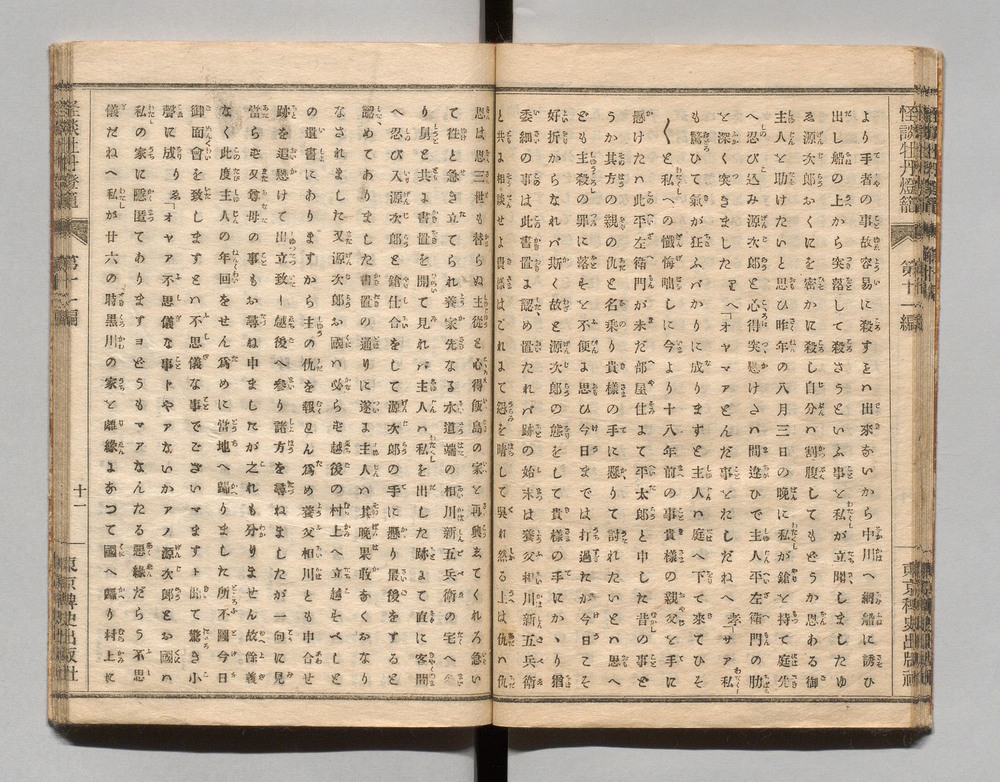 怪談牡丹燈籠
第十一編
東京稗史出版社
より手者の事故容易に殺すことハ出來ないから中川へ網船に誘ひ
出し船の上から突落して殺さうといふ事を私が立聞しましたゆ
ゑ源次郎おくにを密かに殺し自分ハ割腹してもどうか恩ある御
主人を助けたいと思ひ昨年の八月三日の晩に私が鎗を持て庭先
へ忍び込み源次郎と心得突懸けたハ間違ひで主人平左衛門の肋
を深く突きました 「オヤマアとんだ事をおしだねへ 孝「サア私
も驚ひて氣が狂ふバかりに成りますと主人ハ庭へ下て來てひそ
〱と私への懺悔噺しに今より十八年前の事貴様の親父を手に
懸けたハ此平左衛門が未だ部屋住にて平太郎と申した昔の事ど
うか其方の親の仇と名乗り貴様の手に懸りて討れたいとハ思へ
ども主殺の罪に落すを不便に思ひ今日までは打過たが今日こそ
好折からなれバ斯く故と源次郎の態をして貴様の手にかゝり猶
委細の事は此書置に認め置たれバ跡の始末は養父相川新五兵衛
と共に相談せよ貴様はこれまて怨を晴して呉れ然る上は仇ハ仇
恩は恩三世も替らぬ主從と心得飯島の家を再興してくれろ急い
て徃と急き立てられ養家先なる水道端の相川新五兵衛の宅へ參
り舅と共に書置を開て見れバ主人ハ私を出した跡にて直に客間
へ忍び入源次郎と鎗仕合をして源次郎の手に懸り最後をすると
認めてありました書置の通りに遂に主人ハ其晩果敢なくおなり
なされました又源次郎お國ハ必らず越後の村上へ立越すべしと
の遺書にありますから主の仇を報ぜん爲め養父相川とも申合せ
跡を追懸けて出立致し越後へ參り諸方を尋ねましたが一向に見
當らず又尊母の事もお尋ね申ましたが之れも分りません故餘義
なく此度主人の年回をせん爲めに當地へ歸りました所不圖今日
御面會を致しますとハ不思儀な事でございますト聞て驚き小
聲に成り ゑ「オヤア不思儀な事トやアないかアノ源次郎とお國ハ
私の家に隱匿てありますヨどうもマアなんたる惡縁だらう不思
儀だねへ私が廿六の時黒川の家を離縁になつて國へ歸り村上に
第十一編
十一
東京稗史出版社